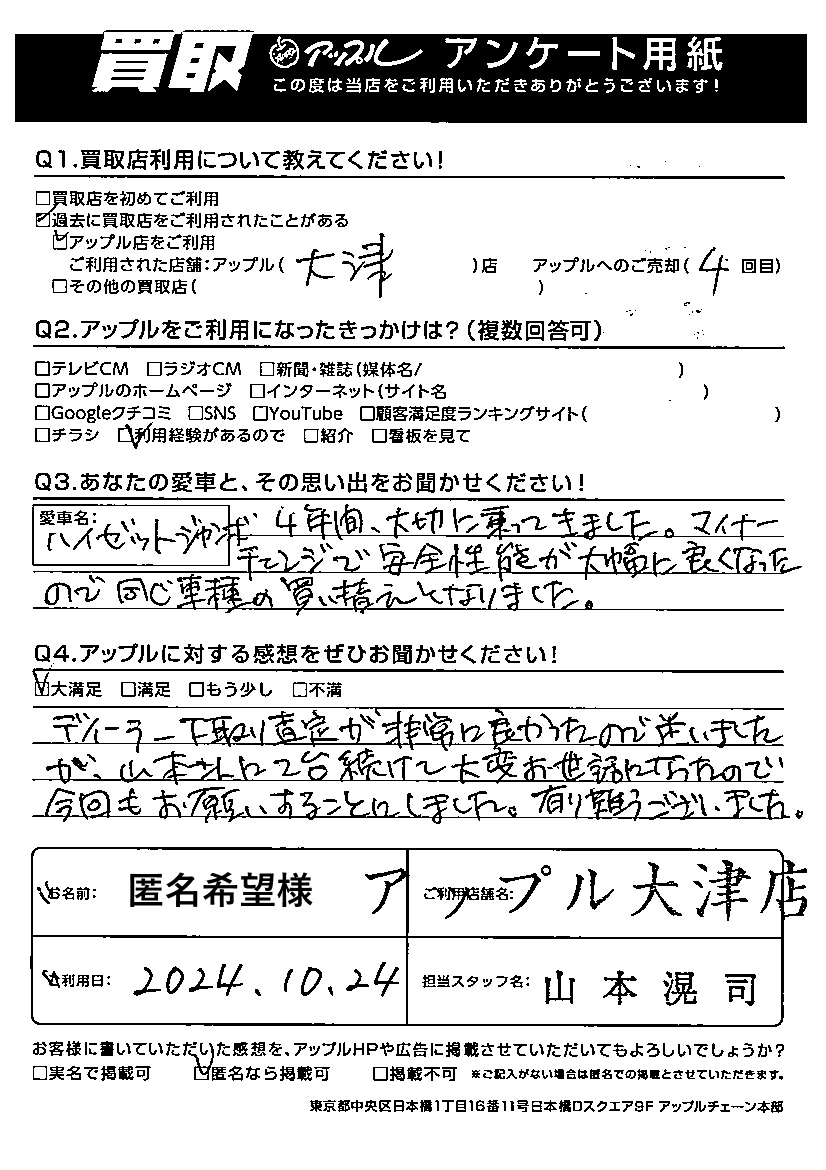 買取 アップル アンケート用紙
この度は当店をご利用いただきありがとうございます!
Q1.買取店利用について教えてください!
□買取店を初めてご利用
☑過去に買取店をご利用されたことがある
☑アップル店をご利用
ご利用された店舗:アップル( 大津 )店 アップルへのご売却( 4 回目)
□その他の買取店( )
Q2.アップルをご利用になったきっかけは?(複数回答可)
□テレビCM □ラジオCM □新聞・雑誌(媒体名/ )
□アップルのホームページ □インターネット(サイト名 )
□Googleクチコミ □SNS □YouTube □顧客満足度ランキングサイト( )
□チラシ ☑利用経験があるので □紹介 □看板を見て
Q3.あなたの愛車と、その思い出をお聞かせください!
愛車名:
ハイゼットジャンボ 4年間、大切に乗ってきました。マイナー
チェンジで安全性能が大幅に良くなった
ので同じ車種の買い替えとなりました。
Q4.アップルに対する感想をぜひお聞かせください!
☑大満足 □満足 □もう少し □不満
ディーラー下取り査定が非常に良かったので迷いました
が、山本さんに2台続けて大変お世話になったので
今回もお願いすることにしました。有り難うございました。
お名前: 匿名希望様 ご利用店舗名: アップル大津店
ご利用日: 2024.10.24 担当スタッフ名: 山本滉司
お客様に書いていただいた感想を、アップルHPや広告に掲載させていただいてもよろしいでしょうか?
□実名で掲載可 ☑匿名なら掲載可 □掲載不可 ※ご記入がない場合は匿名での掲載とさせていただきます。
東京都中央区日本橋1丁目16番11号日本橋Dスクエア9F アップルチェーン本部